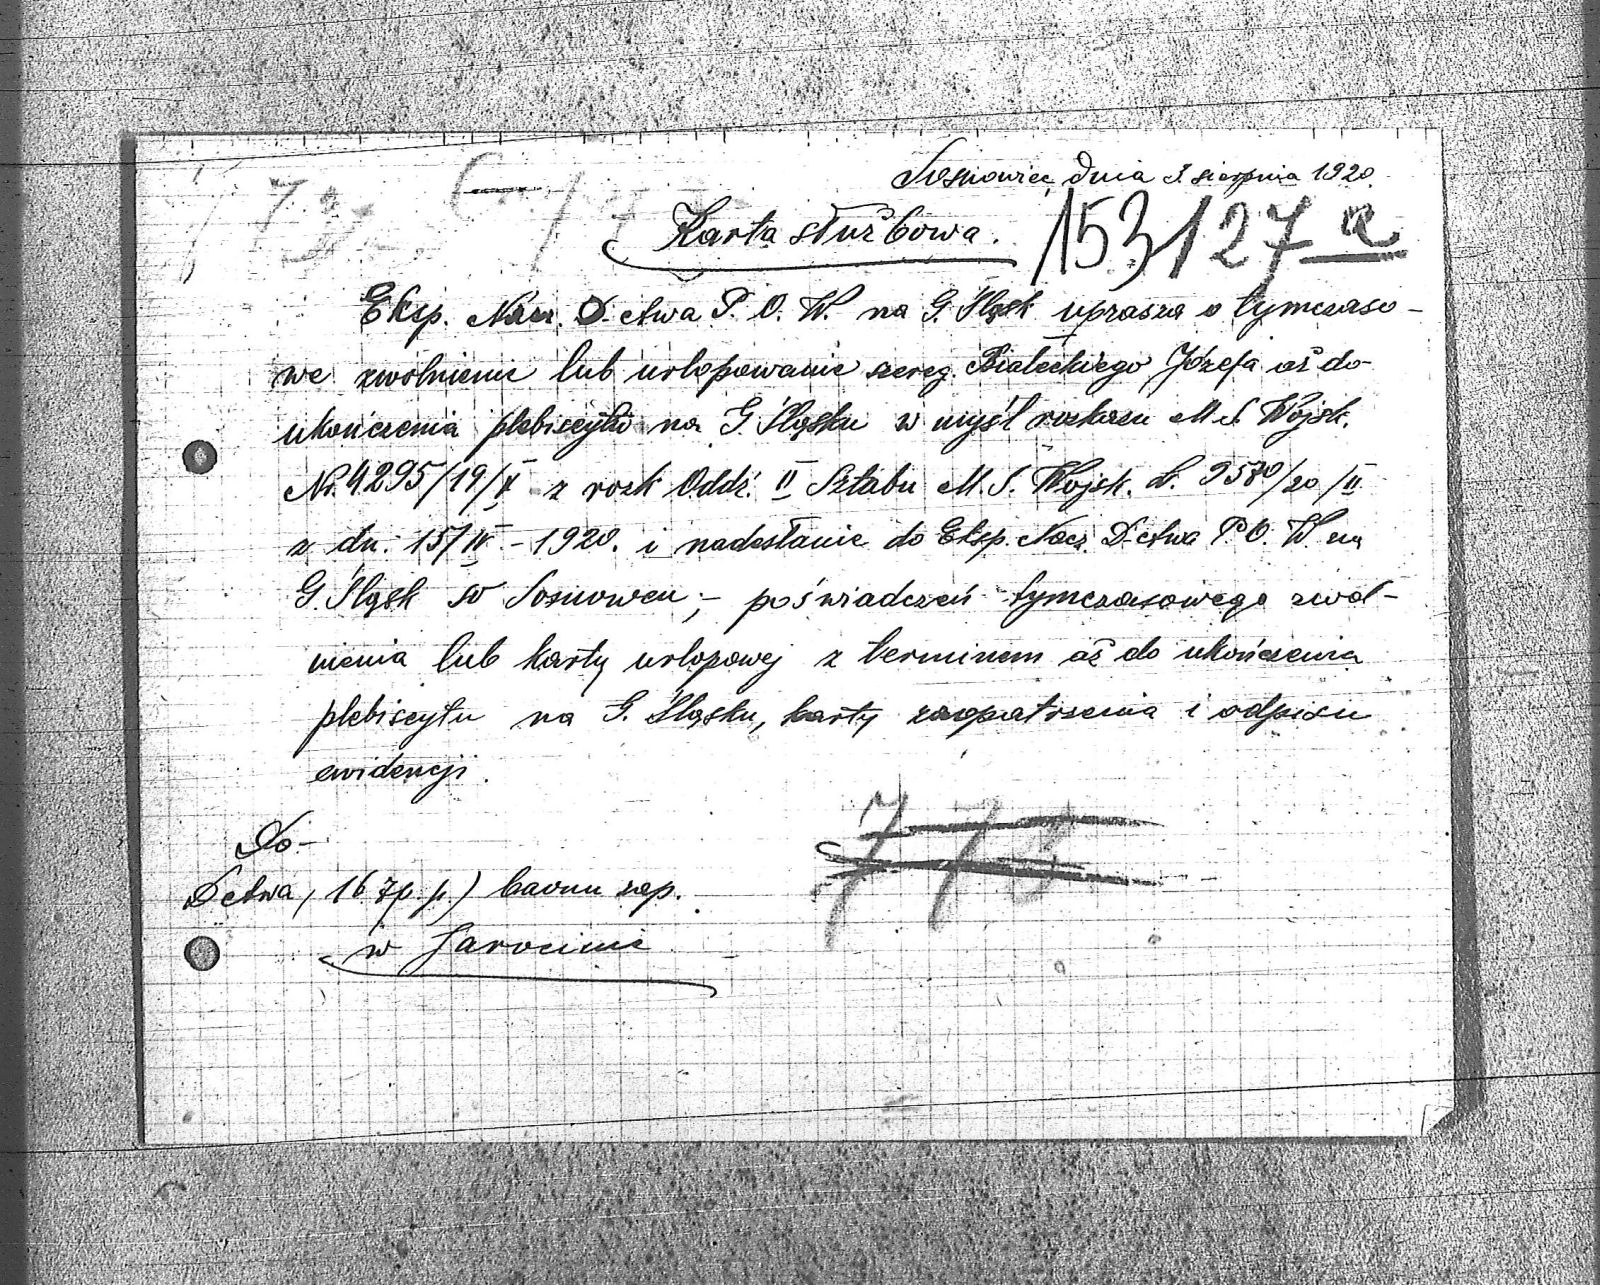 Sosnowiec, dnia 3. sierpnia 1920.
Karta służbowa.
153127 a
Eksp. Nacz. D-ctwa P. O. W. na G. Śląsk uprasza o tymczaso-
we zwolnienie lub urlopowanie szereg. Białeckiego Józefa aż do
ukończenia plebiscytu na G. Śląsku w myśl rozkazu M. S. Wojsk.
Nr. 4295/19/V z rozk Oddź. II Sztabu M. S. Wojsk. L. 9580/20/II
z dn. 15/IV - 1920. i nadesłanie do Eksp. Nacz. D-ctwa P. O. W. na
G. Śląsk w Sosnowcu, - poświadczeń tymczasowego zwol-
nienia lub karty urlopowej z terminem aż do ukończenia
plebiscytu na G. Śląsku, karty zaopatrzenia i odpisu
ewidencji.
773
Do-
D-ctwa, 167p. p.) baonu zap.
w Jarocinie